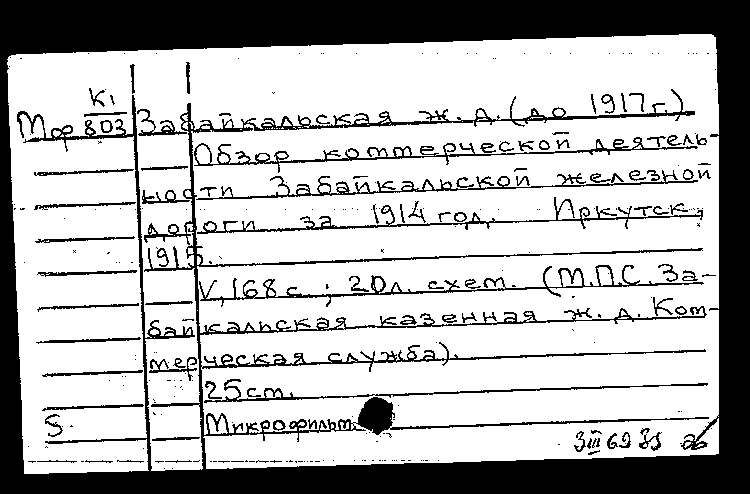 К1
Мф 803 Забайкальская ж. д. (до 1917 г.)
Обзор коммерческой деятель-
ности Забайкальской железной
дороги за 1914 год. Иркутск,
1915.
V, 168 с.; 20 л. схем. (М.П.С. За-
байкальская казенная ж. д. Ком-
мерческая служба).
25 cm.
S Микрофильм.
3 III 69